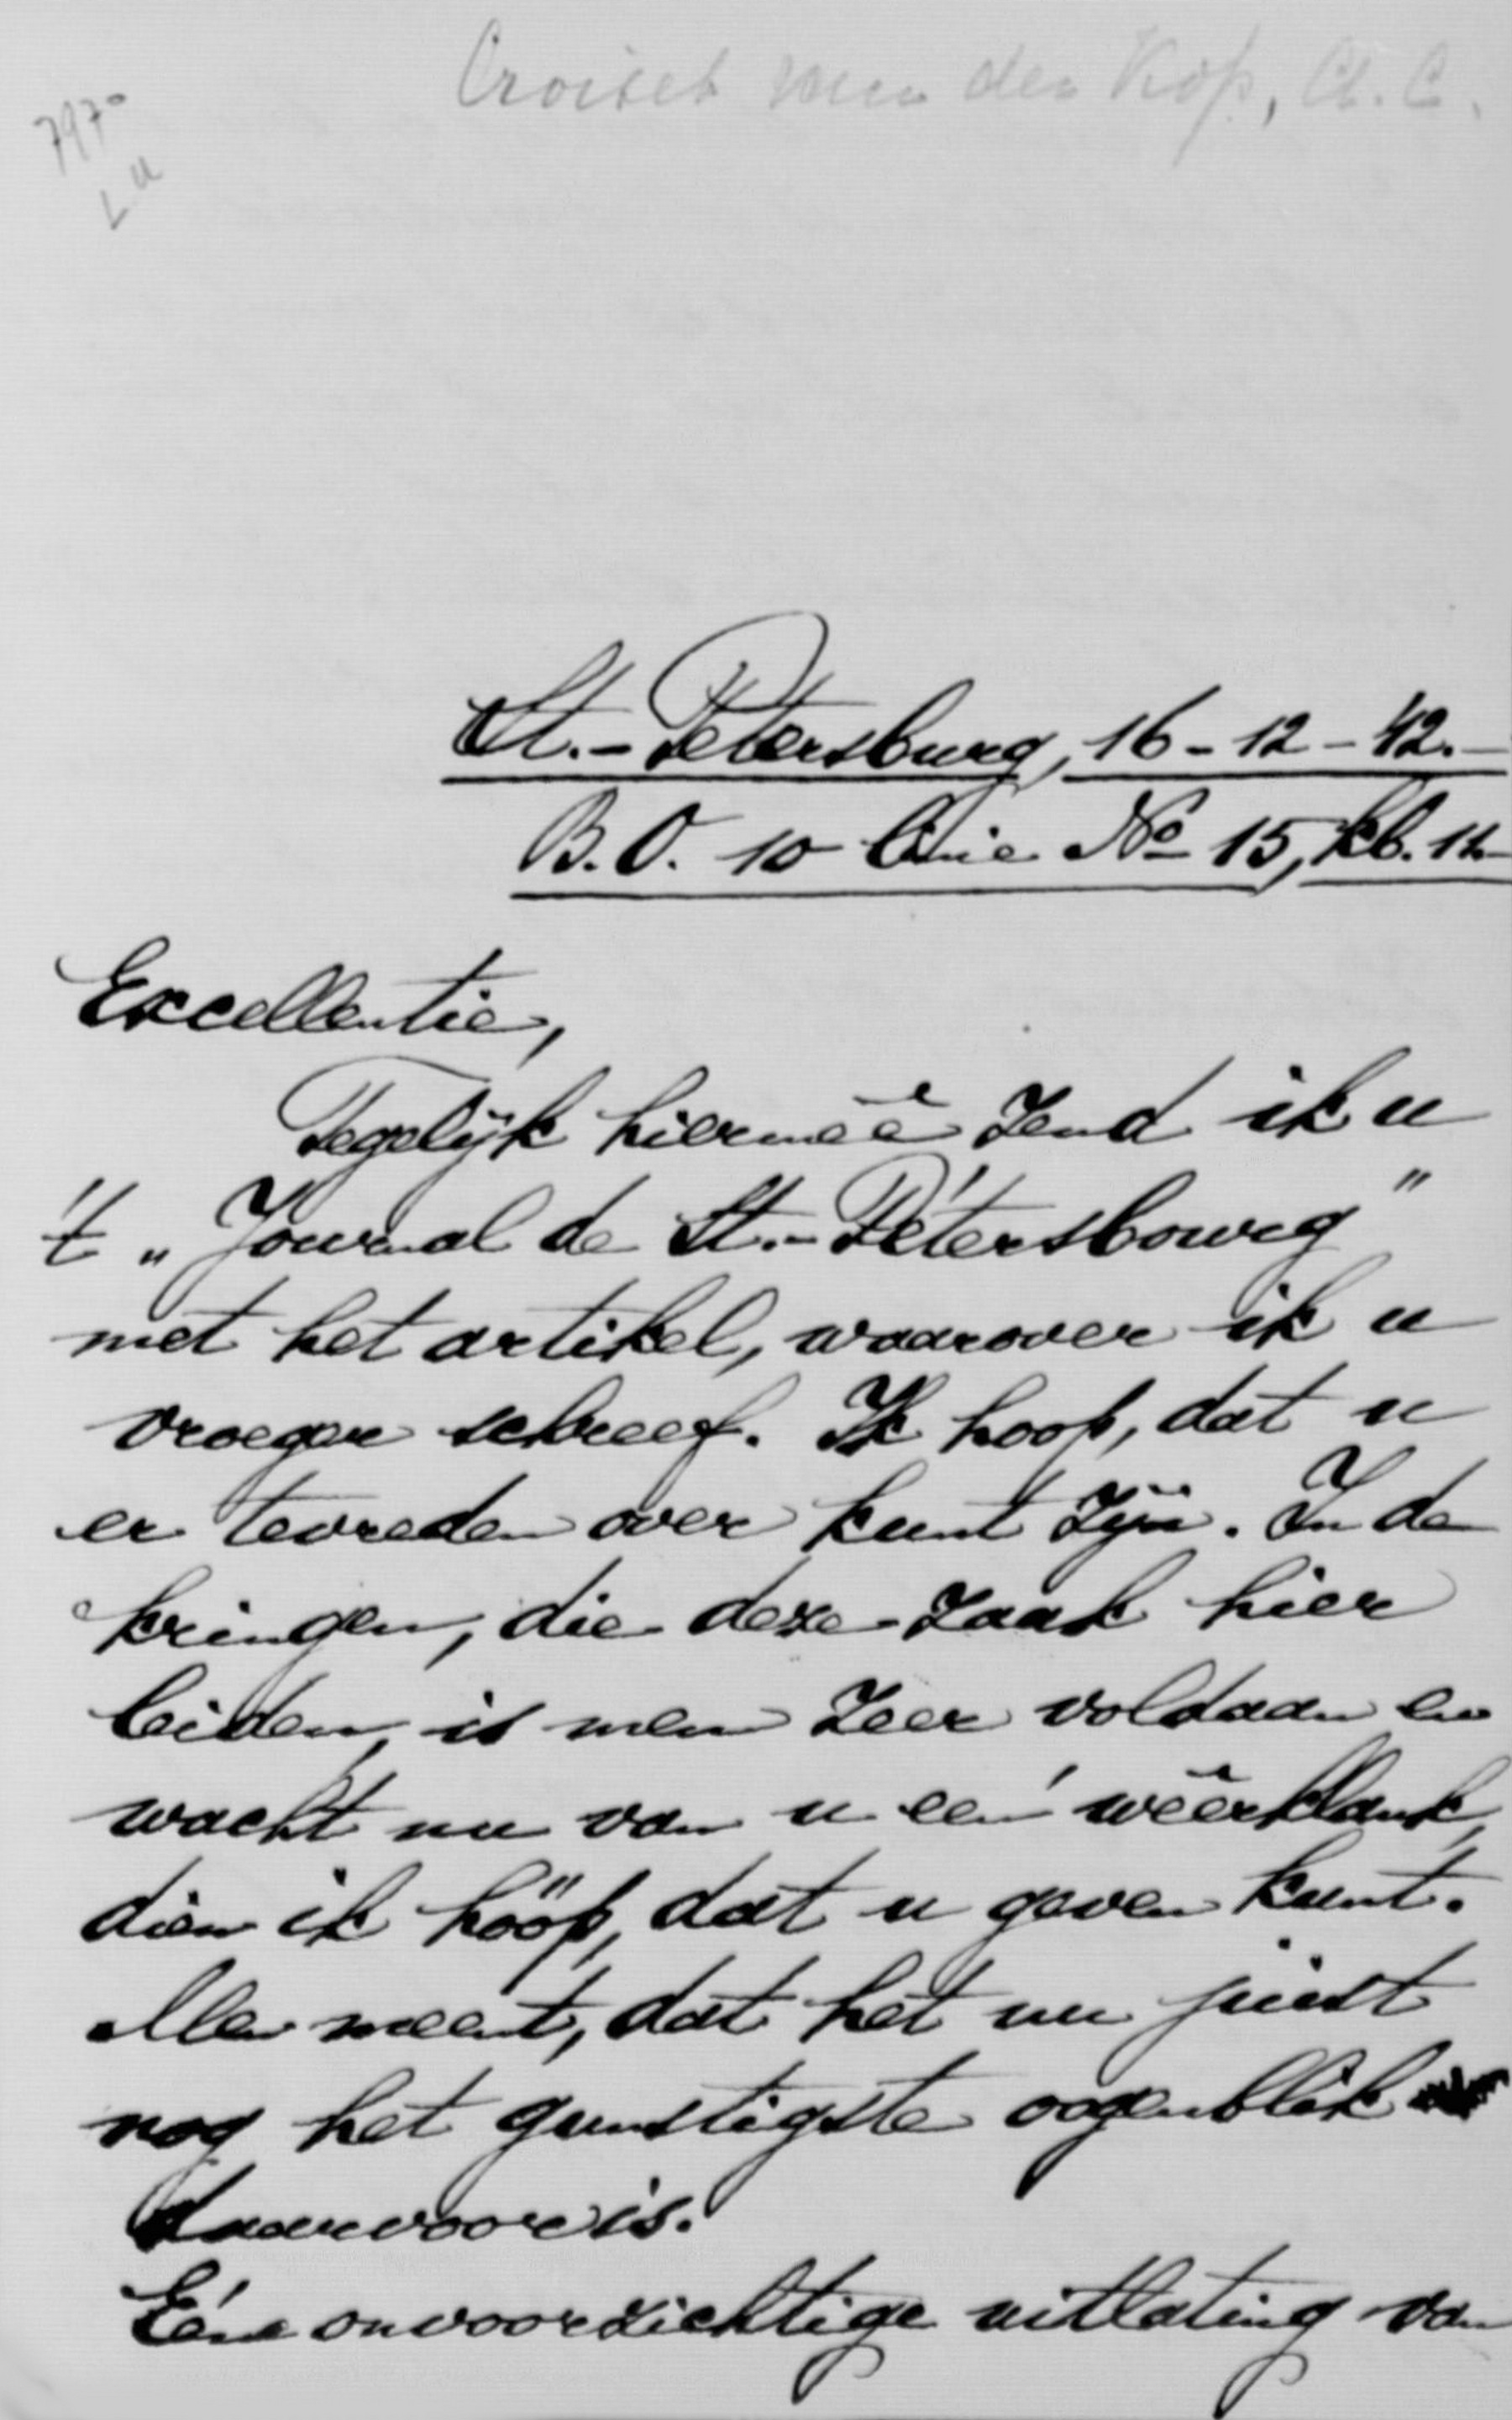 Croiset van der Kop, A. C.
797
St.-Petersburg, 16-12-42.-
B.O. 10 linie No 15, kb. 12
Excellentie,
Tegelijk hiermeê zend ik u
't „Journal de St.-Pétersbourg"
met het artikel, waarover ik u
vroeger schreef. Ik hoop, dat u
er tevreden over kunt zijn. In de
kringen, die deze zaak hier
leiden, is men zeer voldaan en
wacht nu van u een' weêrklank,
dien ik hoop, dat u geven kunt.
Men meent, dat het nu juist
nog het gunstigste oogenblik
daarvoor is.
Eéne onvoorzichtige uitlating van